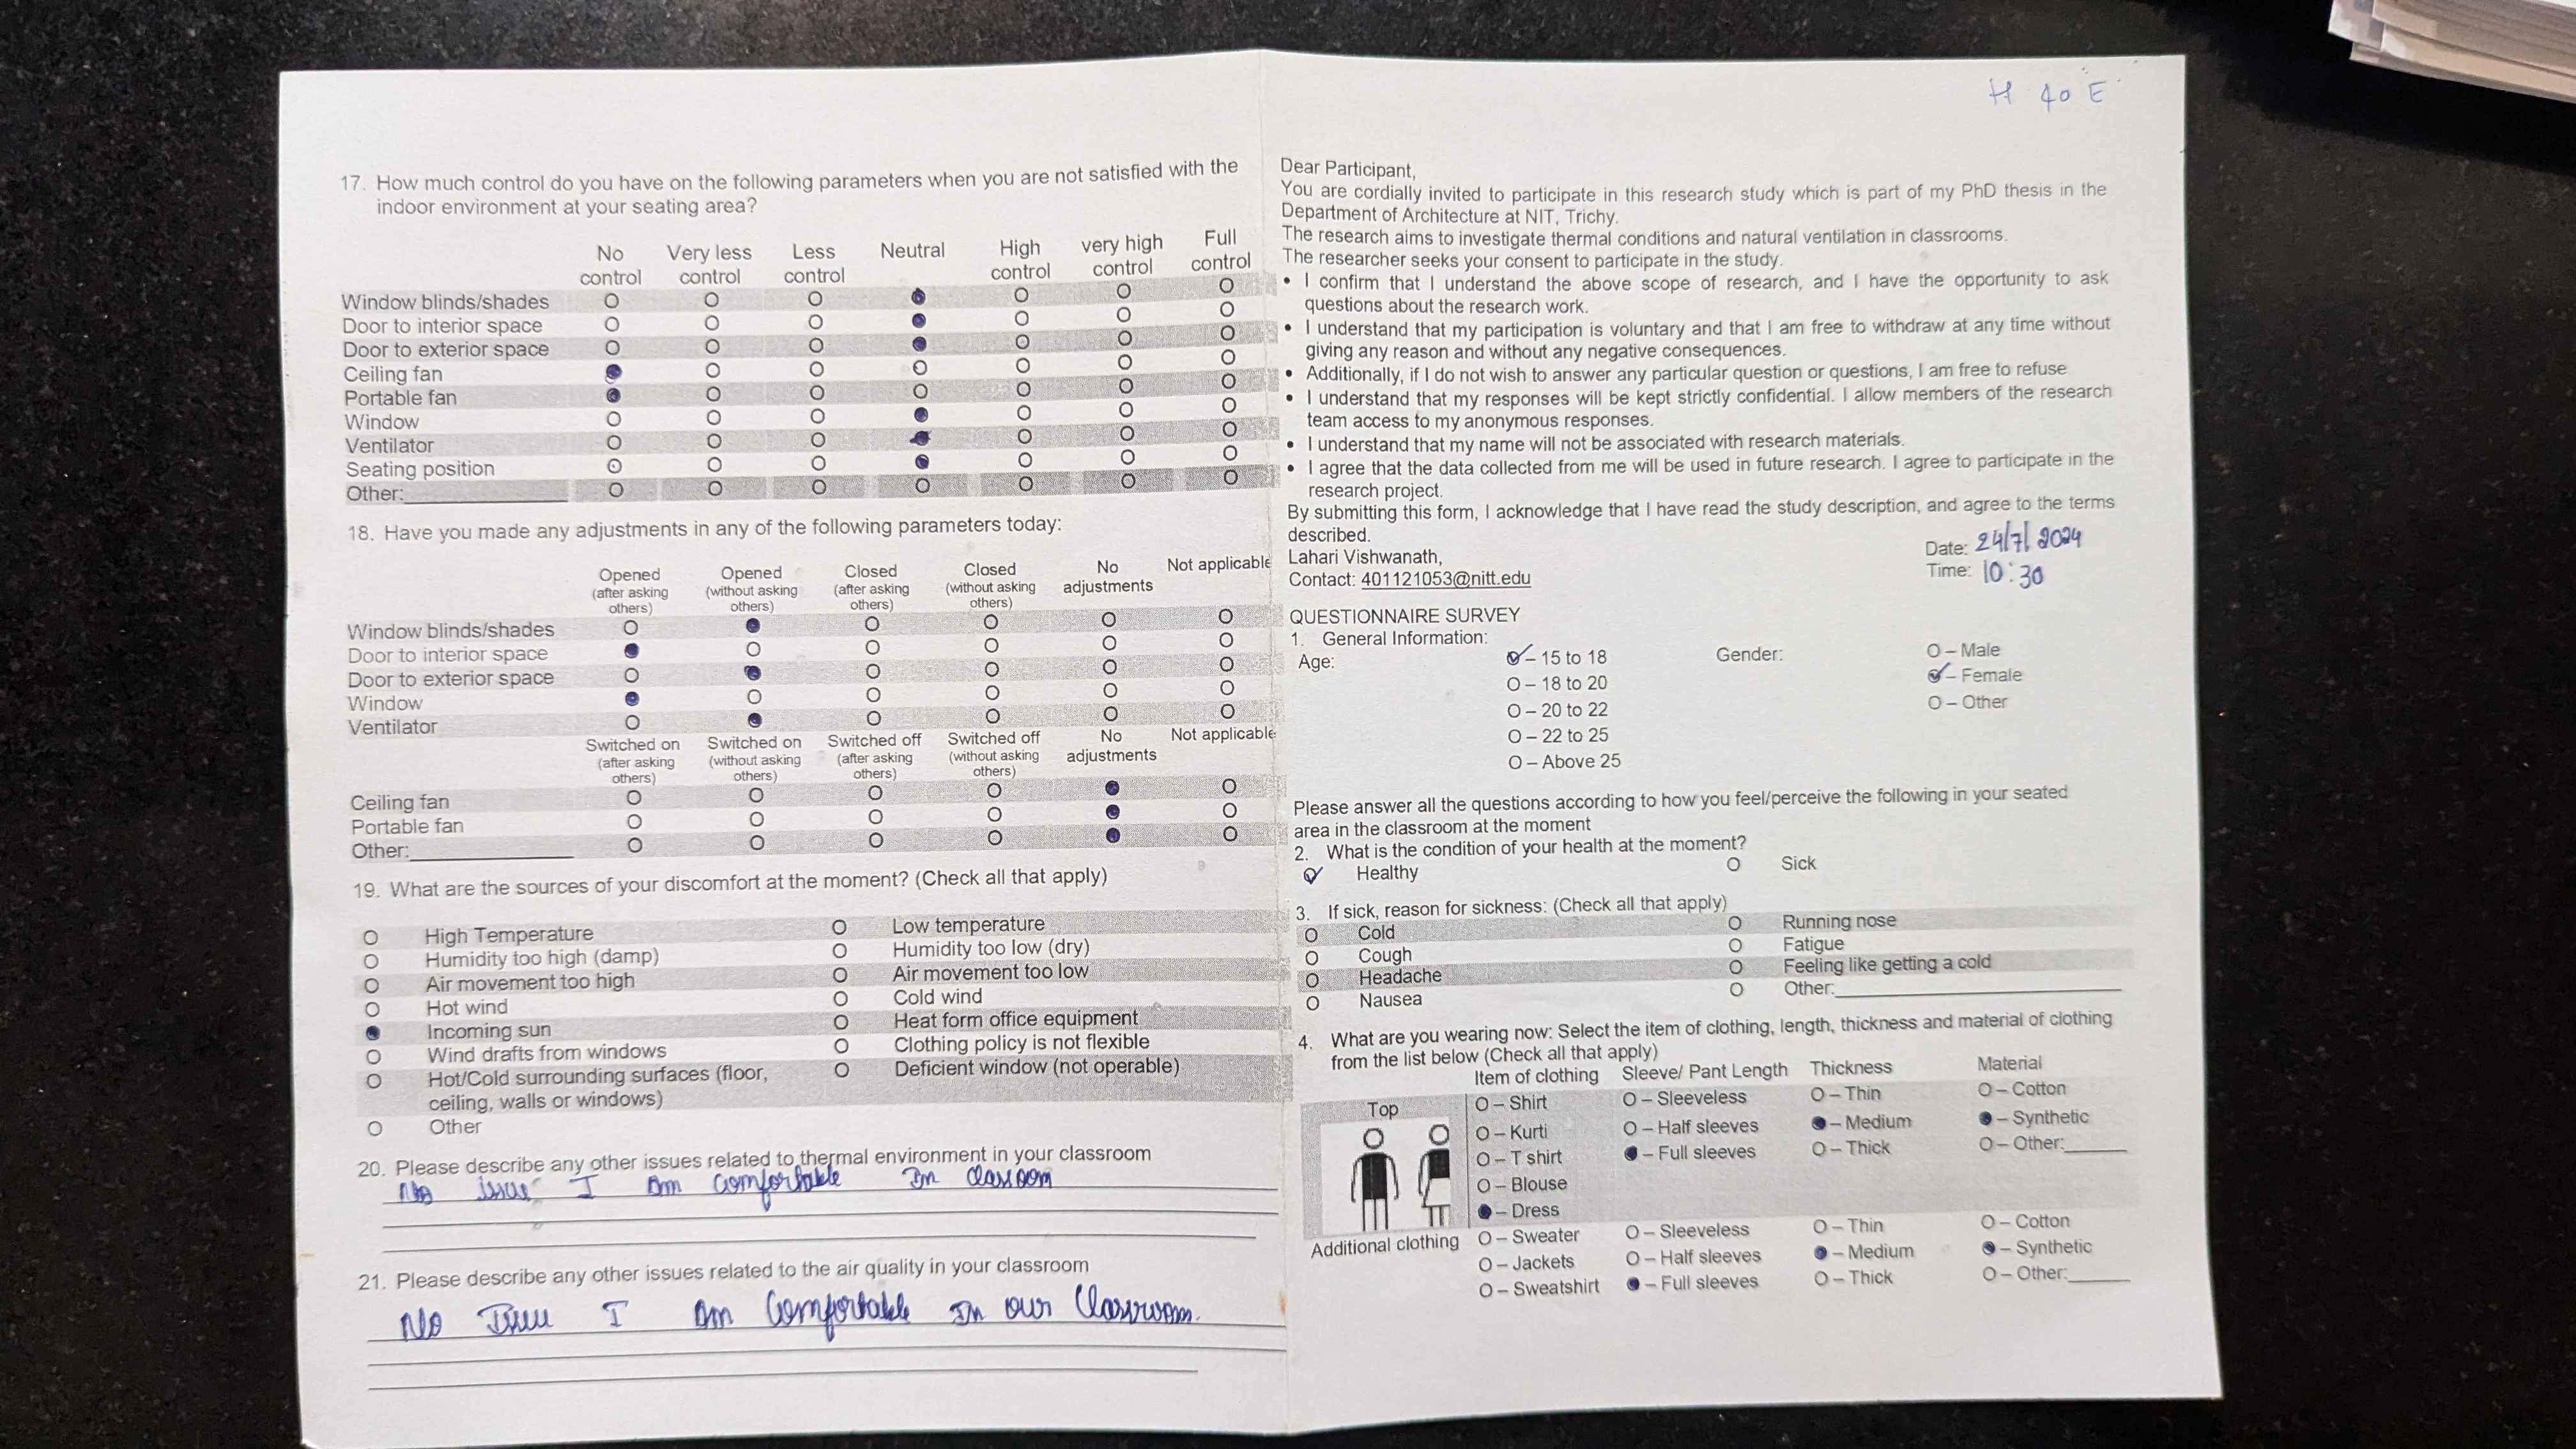 17. How much control do you have on the following parameters when you are not satisfied with the
indoor environment at your seating area?
No control Very less control Less control Neutral High control very high control Full control
Window blinds/shades
Door to interior space
Door to exterior space
Ceiling fan
Portable fan
Window
Ventilator
Seating position
Other:
18. Have you made any adjustments in any of the following parameters today:
Opened (after asking others) Opened (without asking others) Closed (after asking others) Closed (without asking others) No adjustments Not applicable
Window blinds/shades
Door to interior space
Door to exterior space
Window
Ventilator
Switched on (after asking others) Switched on (without asking others) Switched off (after asking others) Switched off (without asking others) No adjustments Not applicable
Ceiling fan
Portable fan
Other:
19. What are the sources of your discomfort at the moment? (Check all that apply)
High Temperature Low temperature
Humidity too high (damp) Humidity too low (dry)
Air movement too high Air movement too low
Hot wind Cold wind
Incoming sun Heat form office equipment
Wind drafts from windows Clothing policy is not flexible
Hot/Cold surrounding surfaces (floor, Deficient window (not operable)
ceiling, walls or windows)
Other
20. Please describe any other issues related to thermal environment in your classroom
No issue I Am comfortable In classoom
21. Please describe any other issues related to the air quality in your classroom
No Issue I Am Comfortable In our Classroom.
H 40 E
Dear Participant,
You are cordially invited to participate in this research study which is part of my PhD thesis in the
Department of Architecture at NIT, Trichy.
The research aims to investigate thermal conditions and natural ventilation in classrooms.
The researcher seeks your consent to participate in the study.
• I confirm that I understand the above scope of research, and I have the opportunity to ask
questions about the research work.
• I understand that my participation is voluntary and that I am free to withdraw at any time without
giving any reason and without any negative consequences.
• Additionally, if I do not wish to answer any particular question or questions, I am free to refuse
• I understand that my responses will be kept strictly confidential. I allow members of the research
team access to my anonymous responses.
• I understand that my name will not be associated with research materials.
• I agree that the data collected from me will be used in future research. I agree to participate in the
research project.
By submitting this form, I acknowledge that I have read the study description, and agree to the terms
described.
Lahari Vishwanath,
Contact: 401121053@nitt.edu
Date: 24/7/2024
Time: 10:30
QUESTIONNAIRE SURVEY
1. General Information:
Age: – 15 to 18 Gender: O – Male
O – 18 to 20 – Female
O – 20 to 22 O – Other
O – 22 to 25
O – Above 25
Please answer all the questions according to how you feel/perceive the following in your seated
area in the classroom at the moment
2. What is the condition of your health at the moment?
Healthy Sick
3. If sick, reason for sickness: (Check all that apply)
Cold Running nose
Cough Fatigue
Headache Feeling like getting a cold
Nausea Other:
4. What are you wearing now: Select the item of clothing, length, thickness and material of clothing
from the list below (Check all that apply)
Item of clothing Sleeve/ Pant Length Thickness Material
Top O – Shirt O – Sleeveless O – Thin O – Cotton
O – Kurti O – Half sleeves – Medium – Synthetic
O – T shirt – Full sleeves O – Thick O – Other:
O – Blouse
– Dress
Additional clothing O – Sweater O – Sleeveless O – Thin O – Cotton
O – Jackets O – Half sleeves – Medium – Synthetic
O – Sweatshirt – Full sleeves O – Thick O – Other: